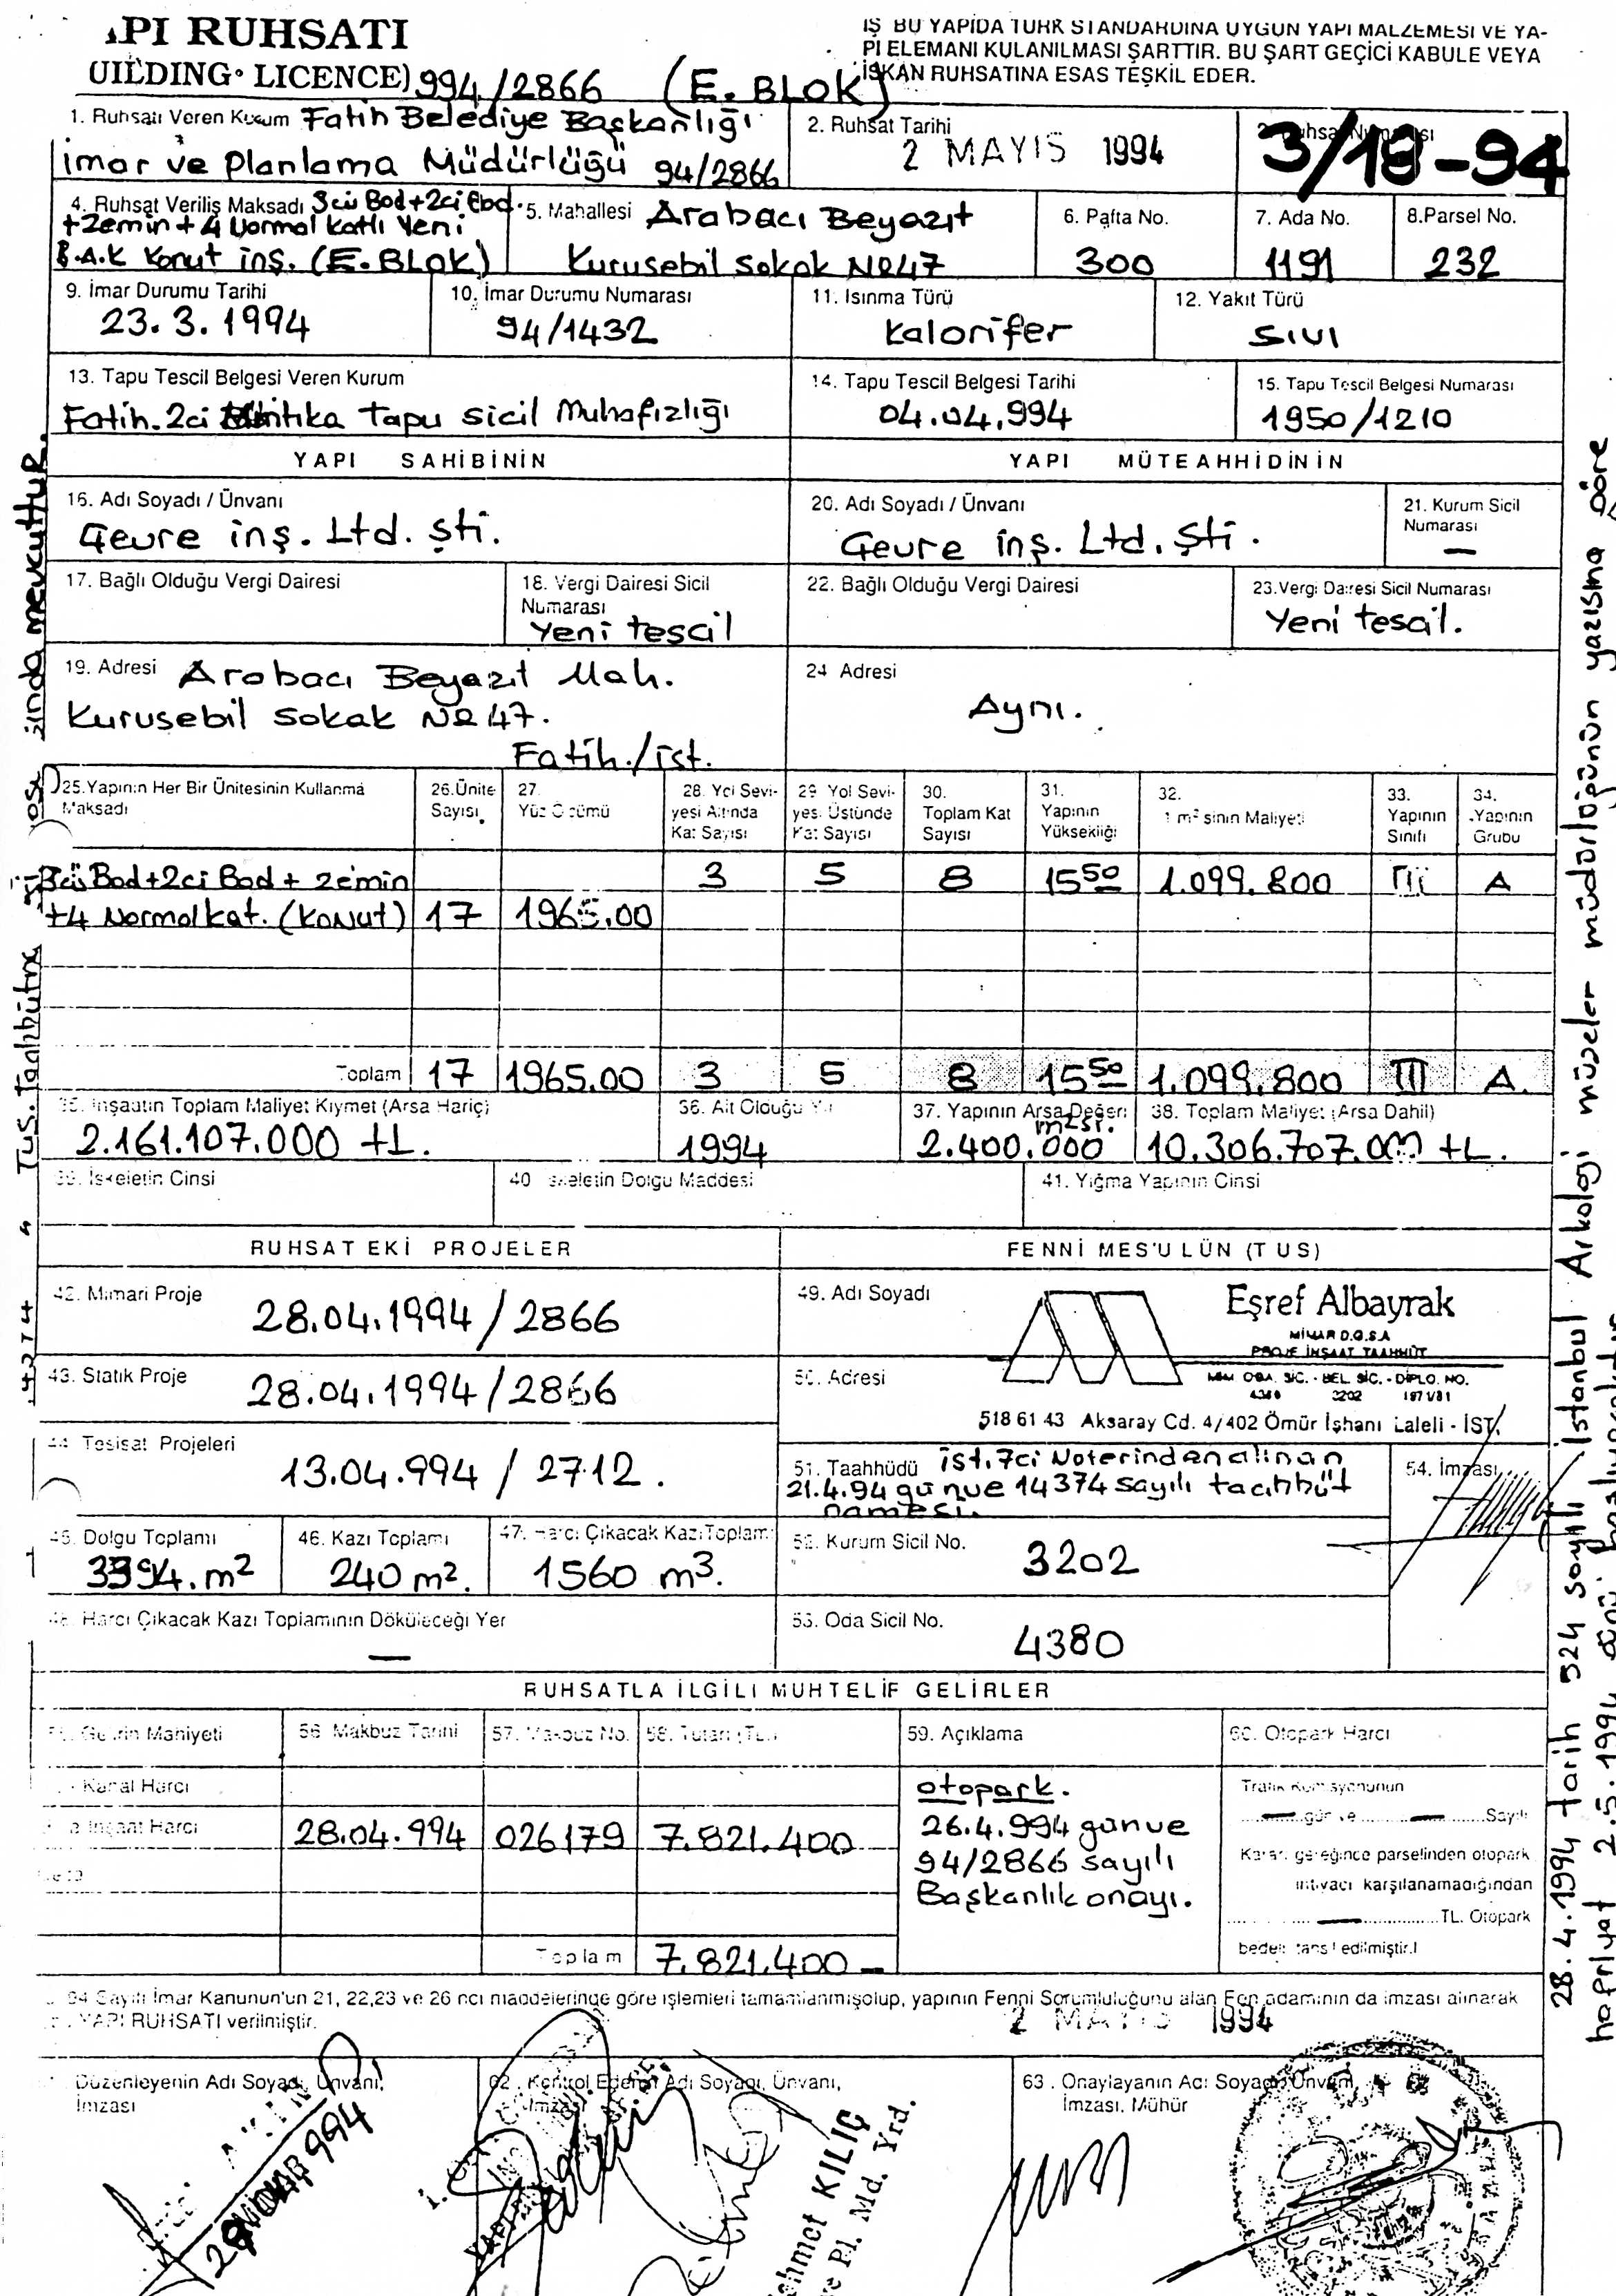 PI RUHSATI
UILDING LICENCE) 994/2866 (E.BLOK)
İŞ BU YAPIDA TÜRK STANDARDINA UYGUN YAPI MALZEMESİ VE YA-
PI ELEMANI KULANILMASI ŞARTTIR. BU ŞART GEÇİCİ KABULE VEYA
İSKAN RUHSATINA ESAS TEŞKİL EDER.
1. Ruhsatı Veren Kurum Fatih Belediye Başkanlığı
İmar ve Planlama Müdürlüğü 94/2866
2. Ruhsat Tarihi
2 MAYIS 1994
3/18-94
4. Ruhsat Veriliş Maksadı 3cü Bod+2ci Bod.
+Zemin+4 Normal Katlı Yeni
B.A.K Konut inş. (E.BLOK)
5. Mahallesi Arabacı Beyazıt
Kurusebil Sokak No 47
6. Pafta No.
300
7. Ada No.
1191
8.Parsel No.
232
9. İmar Durumu Tarihi
23.3.1994
10. İmar Durumu Numarası
94/1432
11. Isınma Türü
Kalorifer
12. Yakıt Türü
SIVI
13. Tapu Tescil Belgesi Veren Kurum
Fatih.2ci Mıntıka Tapu Sicil Muhafızlığı
14. Tapu Tescil Belgesi Tarihi
04.04.994
15. Tapu Tescil Belgesi Numarası
1950/1210
YAPI SAHİBİNİN
YAPI MÜTEAHHİDİNİN
16. Adı Soyadı / Ünvanı
Çevre inş. Ltd. Şti.
20. Adı Soyadı / Ünvanı
Çevre inş. Ltd. Şti.
21. Kurum Sicil
Numarası
—
17. Bağlı Olduğu Vergi Dairesi
18. Vergi Dairesi Sicil
Numarası
Yeni tescil
22. Bağlı Olduğu Vergi Dairesi
23.Vergi Dairesi Sicil Numarası
Yeni tescil.
19. Adresi Arabacı Beyazıt Mah.
Kurusebil Sokak No 47.
Fatih./ist.
24 Adresi
Aynı.
25.Yapının Her Bir Ünitesinin Kullanma
Maksadı
26.Ünite
Sayısı
27.
Yüz Ölçümü
28. Yol Sevi-
yesi Altında
Kat Sayısı
29 Yol Sevi-
yesi Üstünde
Kat Sayısı
30.
Toplam Kat
Sayısı
31.
Yapının
Yüksekliği
32.
1 m² sinin Maliyeti
33.
Yapının
Sınıfı
34.
Yapının
Grubu
3cü Bod+2ci Bod+ zemin 3 5 8 15 50 1.099.800 III A
+4 Normal kat. (Konut) 17 1965.00
Toplam 17 1965.00 3 5 8 15 50 1.099.800 III A.
35. İnşaatın Toplam Maliyet Kıymet (Arsa Hariç)
2.161.107.000 TL.
36. Ait Olduğu Yıl
1994
37. Yapının Arsa Değeri
m2si.
2.400.000
38. Toplam Maliyet (Arsa Dahil)
10.306.707.000 TL.
39. İskeletin Cinsi
40 İskeletin Dolgu Maddesi
41. Yığma Yapının Cinsi
RUHSAT EKİ PROJELER
FENNİ MES'ULÜN (TUS)
42. Mimari Proje
28.04.1994/2866
43. Statik Proje
28.04.1994/2866
44. Tesisat Projeleri
13.04.994 / 2712.
49. Adı Soyadı
Eşref Albayrak
MİMAR D.G.S.A
PROJE İNŞAAT TAAHHÜT
50. Adresi
MİM ODA. SİC. - BEL. SİC. - DİPLO. NO.
4380 3202 197 1/81
518 61 43 Aksaray Cd. 4/402 Ömür İşhanı Laleli - İST.
51. Taahhüdü ist.7ci Noterinden alınan
21.4.94 gün ve 14374 sayılı taahhüt
namesi.
54. İmzası
45. Dolgu Toplamı
3394.m2
46. Kazı Toplamı
240 m2.
47. Harci Çıkacak Kazı Toplamı
1560 m3.
52. Kurum Sicil No.
3202
48. Harcı Çıkacak Kazı Toplamının Döküleceği Yer
—
53. Oda Sicil No.
4380
RUHSATLA İLGİLİ MUHTELİF GELİRLER
55. Gelirin Mahiyeti
56 Makbuz Tarihi
57. Makbuz No.
58. Tutarı (TL.)
59. Açıklama
60. Otopark Harcı
Kanal Harcı
Bina İnşaat Harcı 28.04.994 026179 7.821.400
Toplam 7.821.400
otopark.
26.4.994 gün ve
94/2866 sayılı
Başkanlık onayı.
Trafik Komisyonunun
gün ve Sayılı
Kararı gereğince parselinden otopark
ihtiyacı karşılanamadığından
TL. Otopark
bedeli tahsil edilmiştir.
94 Sayılı İmar Kanunun'un 21, 22,23 ve 26 ncı maddelerinde göre işlemleri tamamlanmış olup, yapının Fenni Sorumluluğunu alan Fen adamının da imzası alınarak
YAPI RUHSATI verilmiştir.
2 MAYIS 1994
Düzenleyenin Adı Soyadı, Ünvanı,
İmzası
MİMAR
28.04.1994
62. Kontrol Edenin Adı Soyadı, Ünvanı,
İmzası
hmet KILIÇ
ve Pl. Md. Yrd.
63. Onaylayanın Adı Soyadı, Ünvanı,
İmzası, Mühür
TUS. Taahhütna
sında mevcuttur.
28.4.1994 tarih 524 sayılı İstanbul Arkoloji müzeler müdürlüğünün yazısına göre
hafriyat 2.5.1994 günü başlıyacaktır